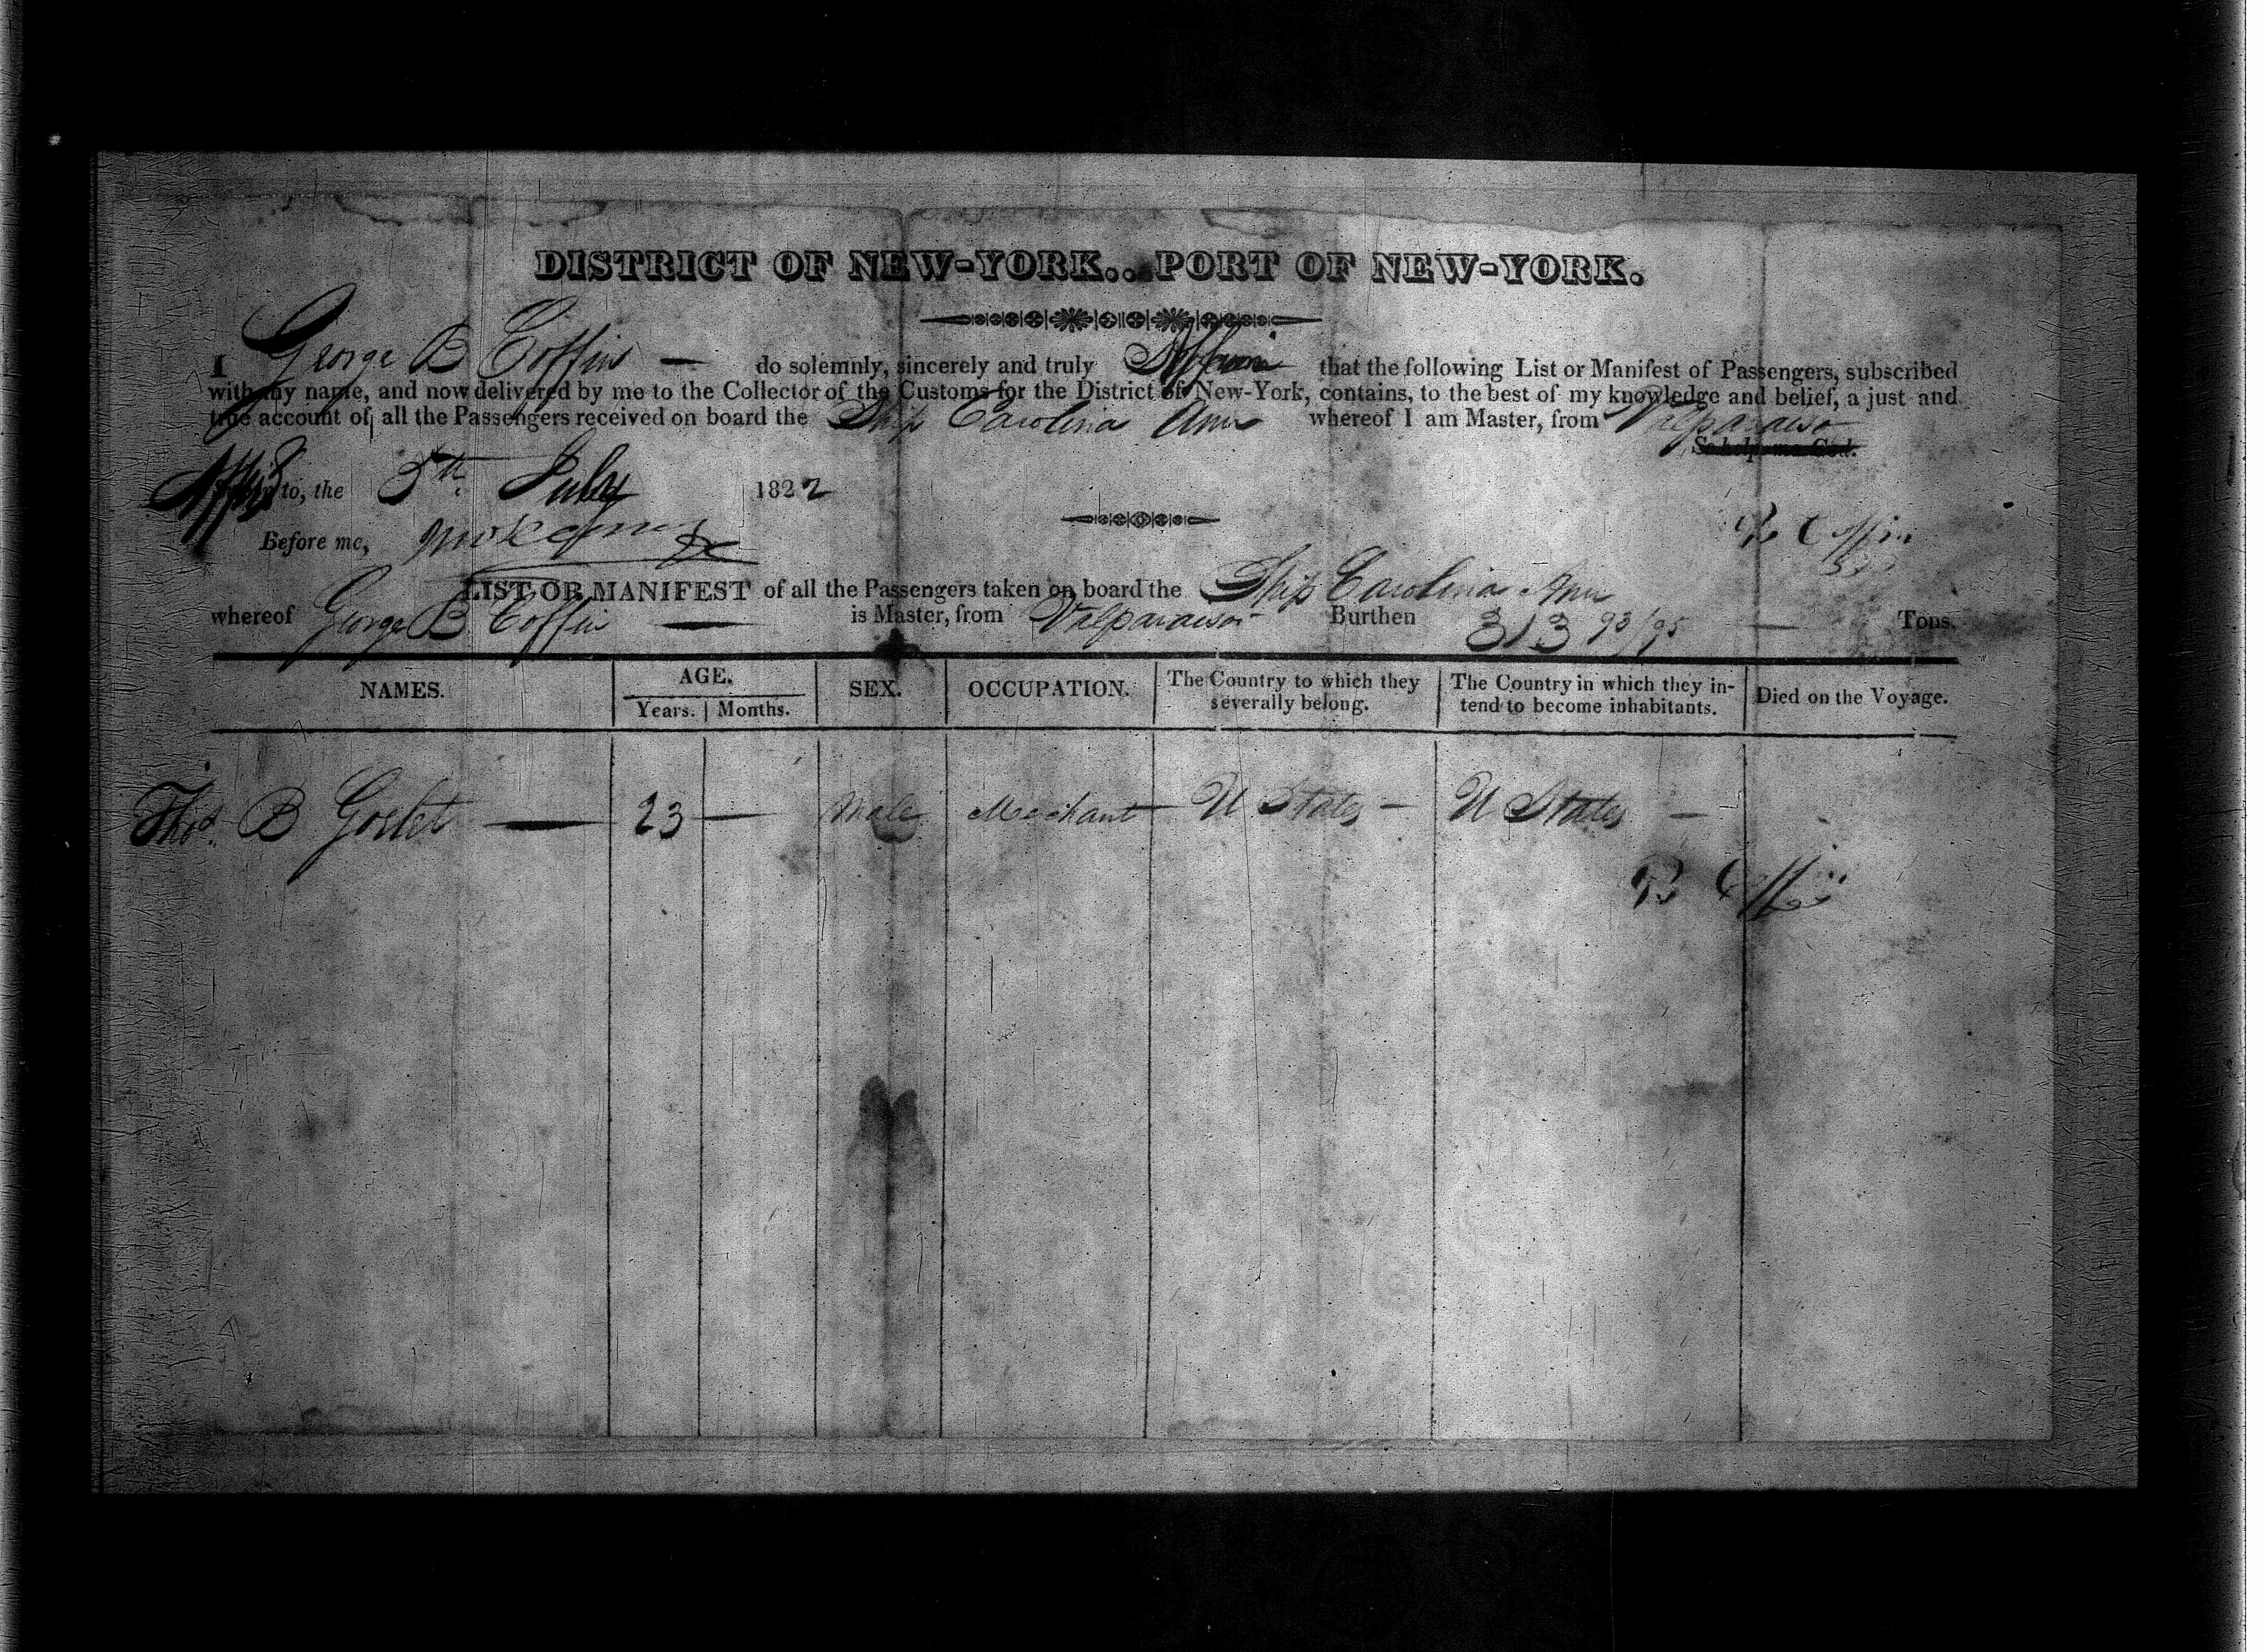 DISTRICT OF NEW-YORK..PORT OF NEW-YORK.
I George B Coffin — do solemnly, sincerely and truly Affirm that the following List or Manifest of Passengers, subscribed
with my name, and now delivered by me to the Collector of the Customs for the District of New-York, contains, to the best of my knowledge and belief, a just and
true account of all the Passengers received on board the Ship Carolina Ann whereof I am Master, from Valparaiso
So help me God.
Affd to, the 5th July 1822
B Coffin
Before me,
LIST OR MANIFEST of all the Passengers taken on board the Ship Carolina Ann
whereof George B Coffin — is Master, from Valparaiso Burthen 313 93/95 — Tons.
NAMES. AGE. SEX. OCCUPATION. The Country to which they severally belong. The Country in which they in-tend to become inhabitants. Died on the Voyage.
Years. Months.
Thos. B Goslet — 23 — Male Merchant U States — U States —
B Coffin